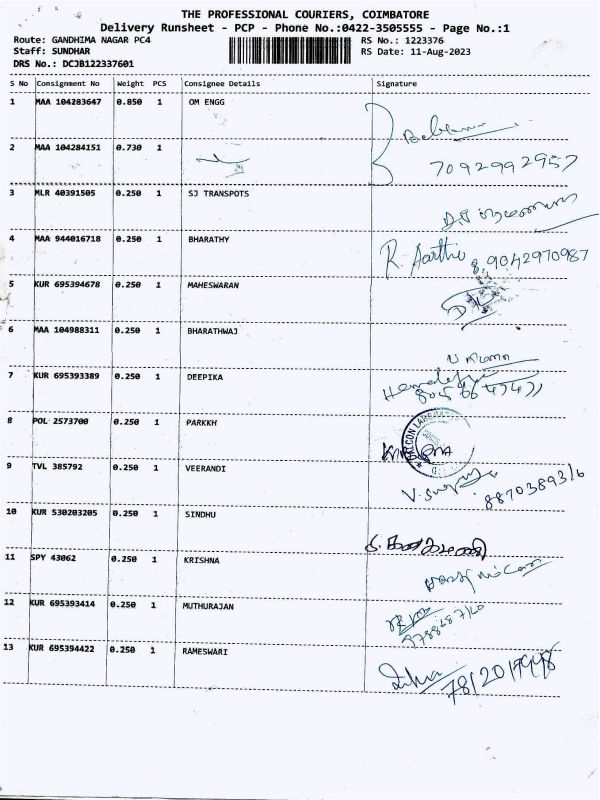 THE PROFESSIONAL COURIERS, COIMBATORE
Delivery Runsheet - PCP - Phone No.:0422-3505555 - Page No.:1
Route: GANDHIMA NAGAR PC4 RS No.: 1223376
Staff: SUNDHAR RS Date: 11-Aug-2023
DRS No.: DCJB122337601
S No Consignment No Weight PCS Consignee Details Signature
1 MAA 104283647 0.850 1 OM ENGG
2 MAA 104284151 0.730 1
7092992957
3 MLR 40391505 0.250 1 SJ TRANSPOTS
4 MAA 944016718 0.250 1 BHARATHY R. Aarthi 9042970987
5 KUR 695394678 0.250 1 MAHESWARAN
6 MAA 104988311 0.250 1 BHARATHWAJ
7 KUR 695393389 0.250 1 DEEPIKA
8 POL 2573700 0.250 1 PARKKH
9 TVL 385792 0.250 1 VEERANDI
10 KUR 530203205 0.250 1 SINDHU
11 SPY 43062 0.250 1 KRISHNA
12 KUR 695393414 0.250 1 MUTHURAJAN
13 KUR 695394422 0.250 1 RAMESWARI